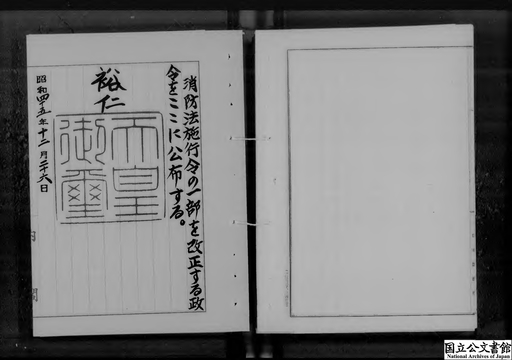 消防法施行令の一部を改正する政
令をここに公布する。
裕仁
天皇
御璽
昭和四十五年十二月二十六日
内閣
国立公文書館
National Archives of Japan